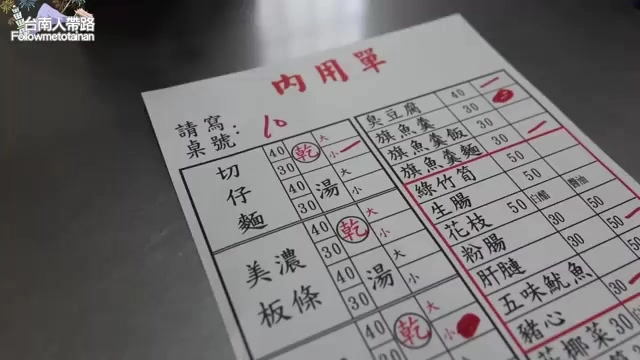 台南人帶路
Followmetotainan
內用單
請寫桌號: 10
切仔麵
40 乾 大
30 小 一
40 湯
30
美濃板條
40 乾 大
30 小
40 湯
30
40 乾 大
30 小
臭豆腐 40 一
旗魚羹 30
旗魚羹飯 40
旗魚羹麵 30 一
綠竹筍 50
生腸 50
花枝 50 白醋 醬油
粉腸 30 50
肝膁 30 50 一
五味魷魚 50
豬心 30
椰菜 30